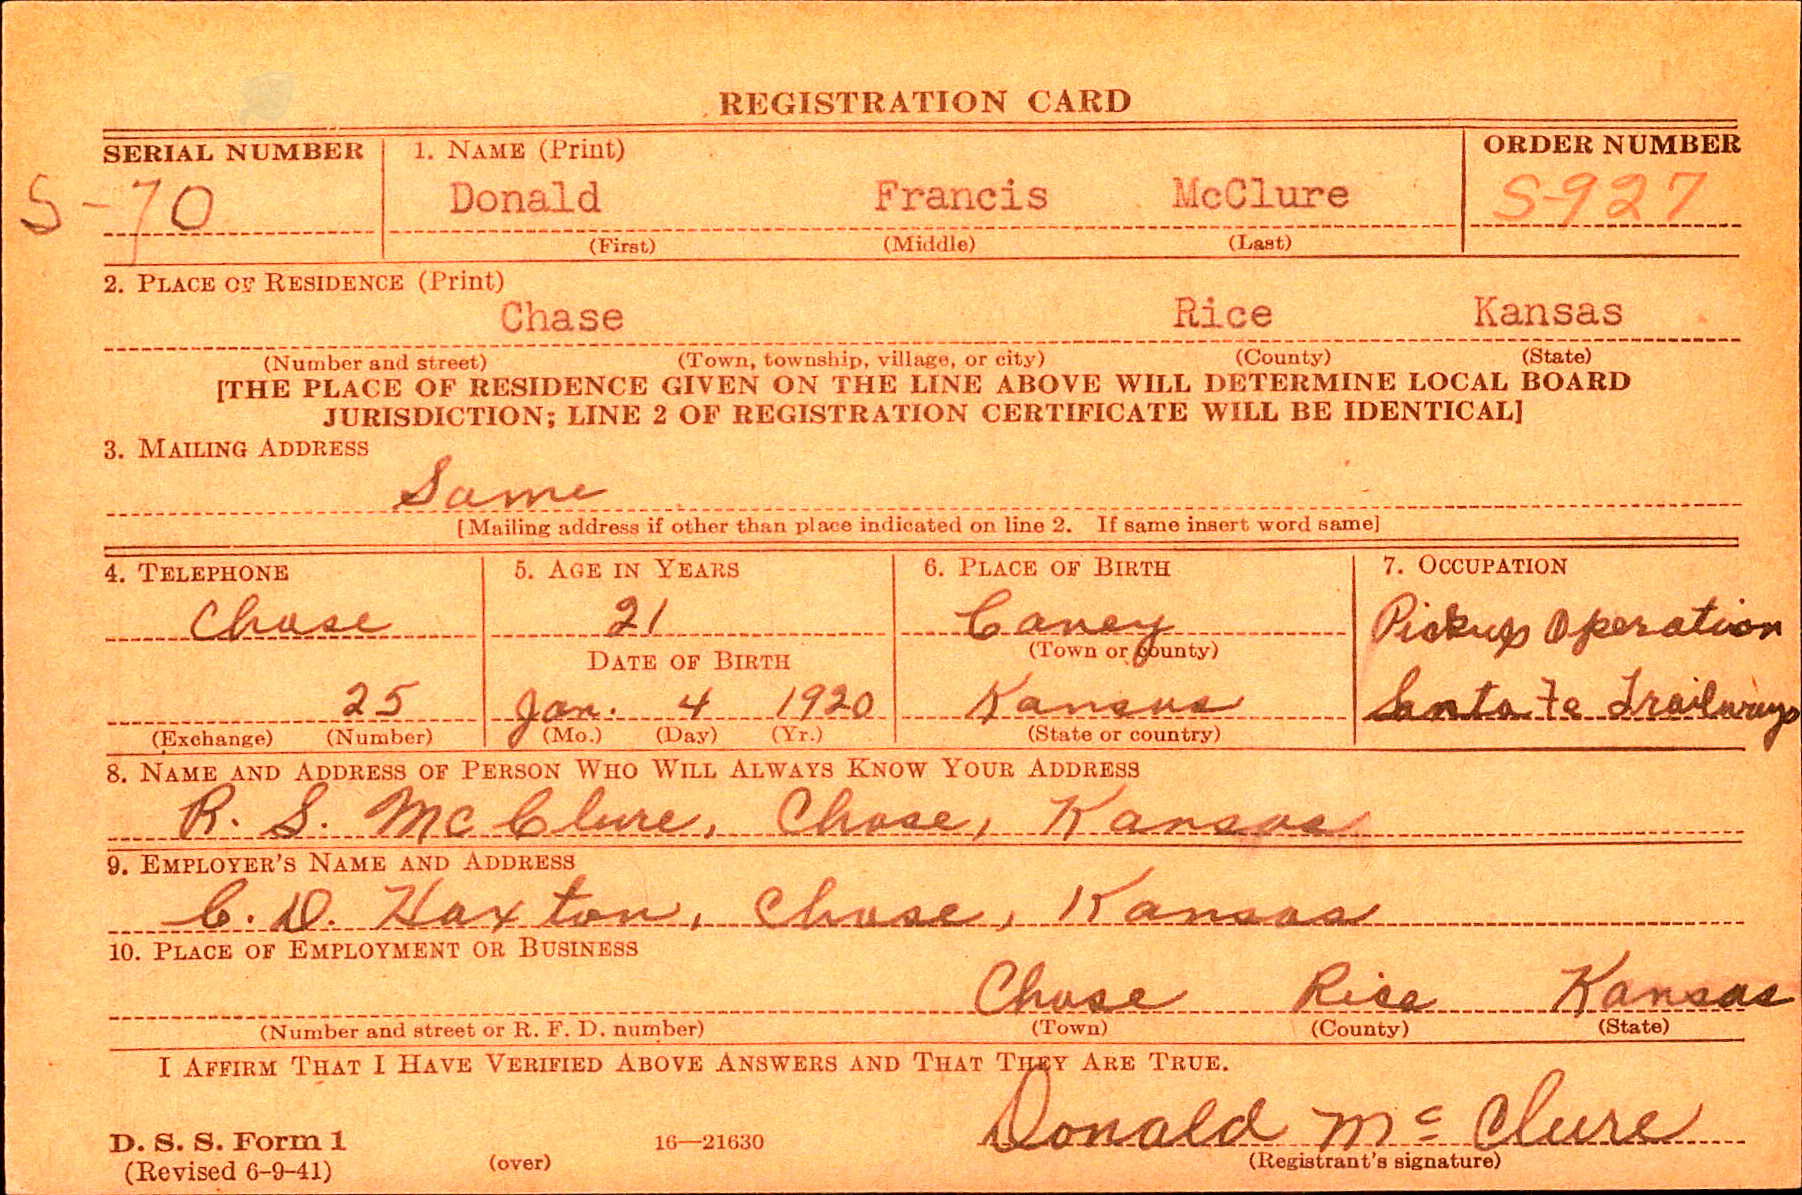 REGISTRATION CARD
SERIAL NUMBER 1. NAME (Print) ORDER NUMBER
S-70 Donald Francis McClure S-927
(First) (Middle) (Last)
2. PLACE OF RESIDENCE (Print)
Chase Rice Kansas
(Number and street) (Town, township, village, or city) (County) (State)
[THE PLACE OF RESIDENCE GIVEN ON THE LINE ABOVE WILL DETERMINE LOCAL BOARD
JURISDICTION; LINE 2 OF REGISTRATION CERTIFICATE WILL BE IDENTICAL]
3. MAILING ADDRESS
Same
[Mailing address if other than place indicated on line 2. If same insert word same]
4. TELEPHONE 5. AGE IN YEARS 6. PLACE OF BIRTH 7. OCCUPATION
Chase 21 Caney Pickup Operation
DATE OF BIRTH (Town or county)
25 Jan. 4 1920 Kansas Santa Fe Trailways
(Exchange) (Number) (Mo.) (Day) (Yr.) (State or country)
8. NAME AND ADDRESS OF PERSON WHO WILL ALWAYS KNOW YOUR ADDRESS
R. S. McClure, Chase, Kansas
9. EMPLOYER'S NAME AND ADDRESS
C. D. Haxton, Chase, Kansas
10. PLACE OF EMPLOYMENT OR BUSINESS
Chase Rice Kansas
(Number and street or R. F. D. number) (Town) (County) (State)
I AFFIRM THAT I HAVE VERIFIED ABOVE ANSWERS AND THAT THEY ARE TRUE.
Donald McClure
D. S. S. Form 1 16—21630
(Revised 6-9-41) (over) (Registrant's signature)